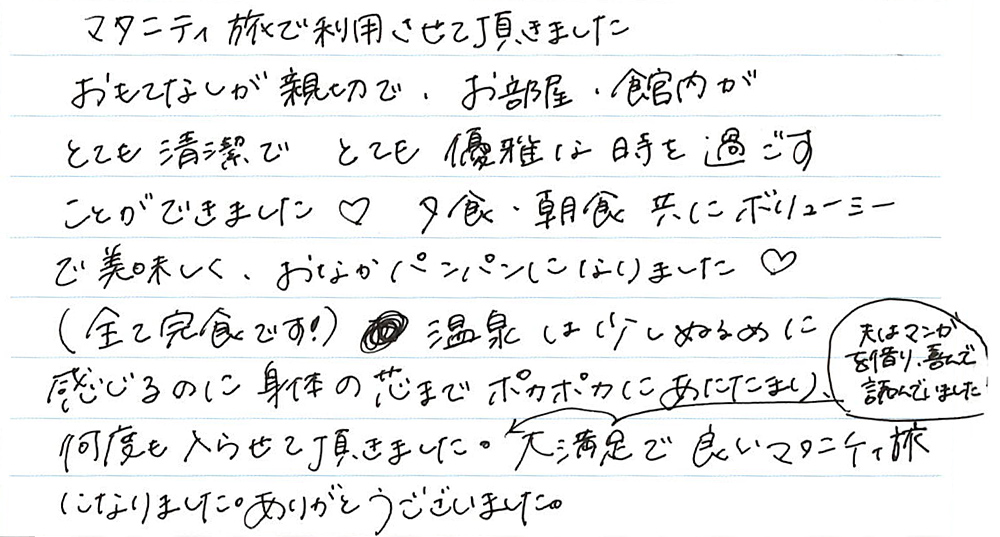 マタニティ旅で利用させて頂きました
おもてなしが親切で、お部屋・館内が
とても清潔で とても優雅な時を過ごす
ことができました♡ 夕食・朝食共にボリューミー
で美味しく、おなかパンパンになりました♡
(全て完食です!) 温泉は少しぬるめに
感じるのに身体の芯までポカポカにあたたまり、
何度も入らせて頂きました。大満足で良いマタニティ旅
になりました。ありがとうございました。
夫はマンガ
を借り、喜んで
読んでいました